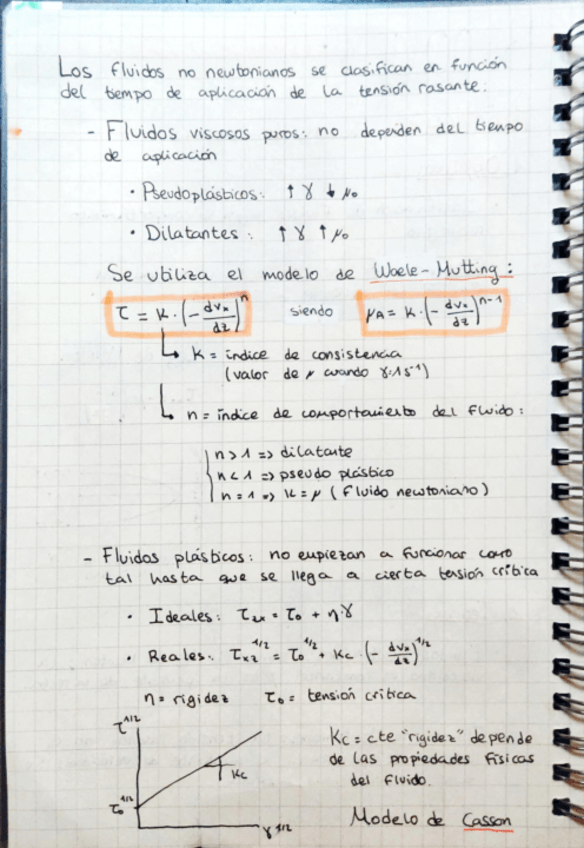 Los fluidos no newtonianos se clasifican en función
del tiempo de aplicación de la tensión rasante:
- Fluidos viscosos puros: no dependen del tiempo
de aplicación
· Pseudoplásticos: ↑ γ ↓ μ₀
· Dilatantes: ↑ γ ↑ μ₀
Se utiliza el modelo de Waele-Mutting:
τ = K · (- dvₓ/dz)ⁿ siendo μA = K · (- dvₓ/dz)ⁿ⁻¹
K = índice de consistencia
(valor de μ cuando γ=1s⁻¹)
n = índice de comportamiento del fluido:
n > 1 => dilatante
n < 1 => pseudo plástico
n = 1 => K = μ (Fluido newtoniano)
- Fluidos plásticos: no empiezan a funcionar como
tal hasta que se llega a cierta tensión crítica
· Ideales: τzx = τ₀ + η·γ
· Reales: τxz^1/2 = τ₀^1/2 + Kc · (- dvₓ/dz)^1/2
η = rigidez τ₀ = tensión crítica
τ^1/2
Kc = cte "rigidez" depende
de las propiedades físicas
del fluido.
Kc
τ₀^1/2
γ^1/2
Modelo de Casson